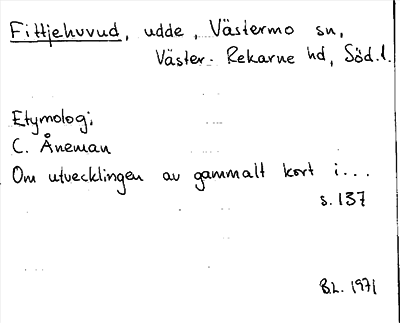 Fittjehuvud, udde, Västermo sn,
Väster-Rekarne hd, Söd.l.
Etymologi
C. Åneman
Om utvecklingen av gammalt kort i...
s. 137
B.L. 1971